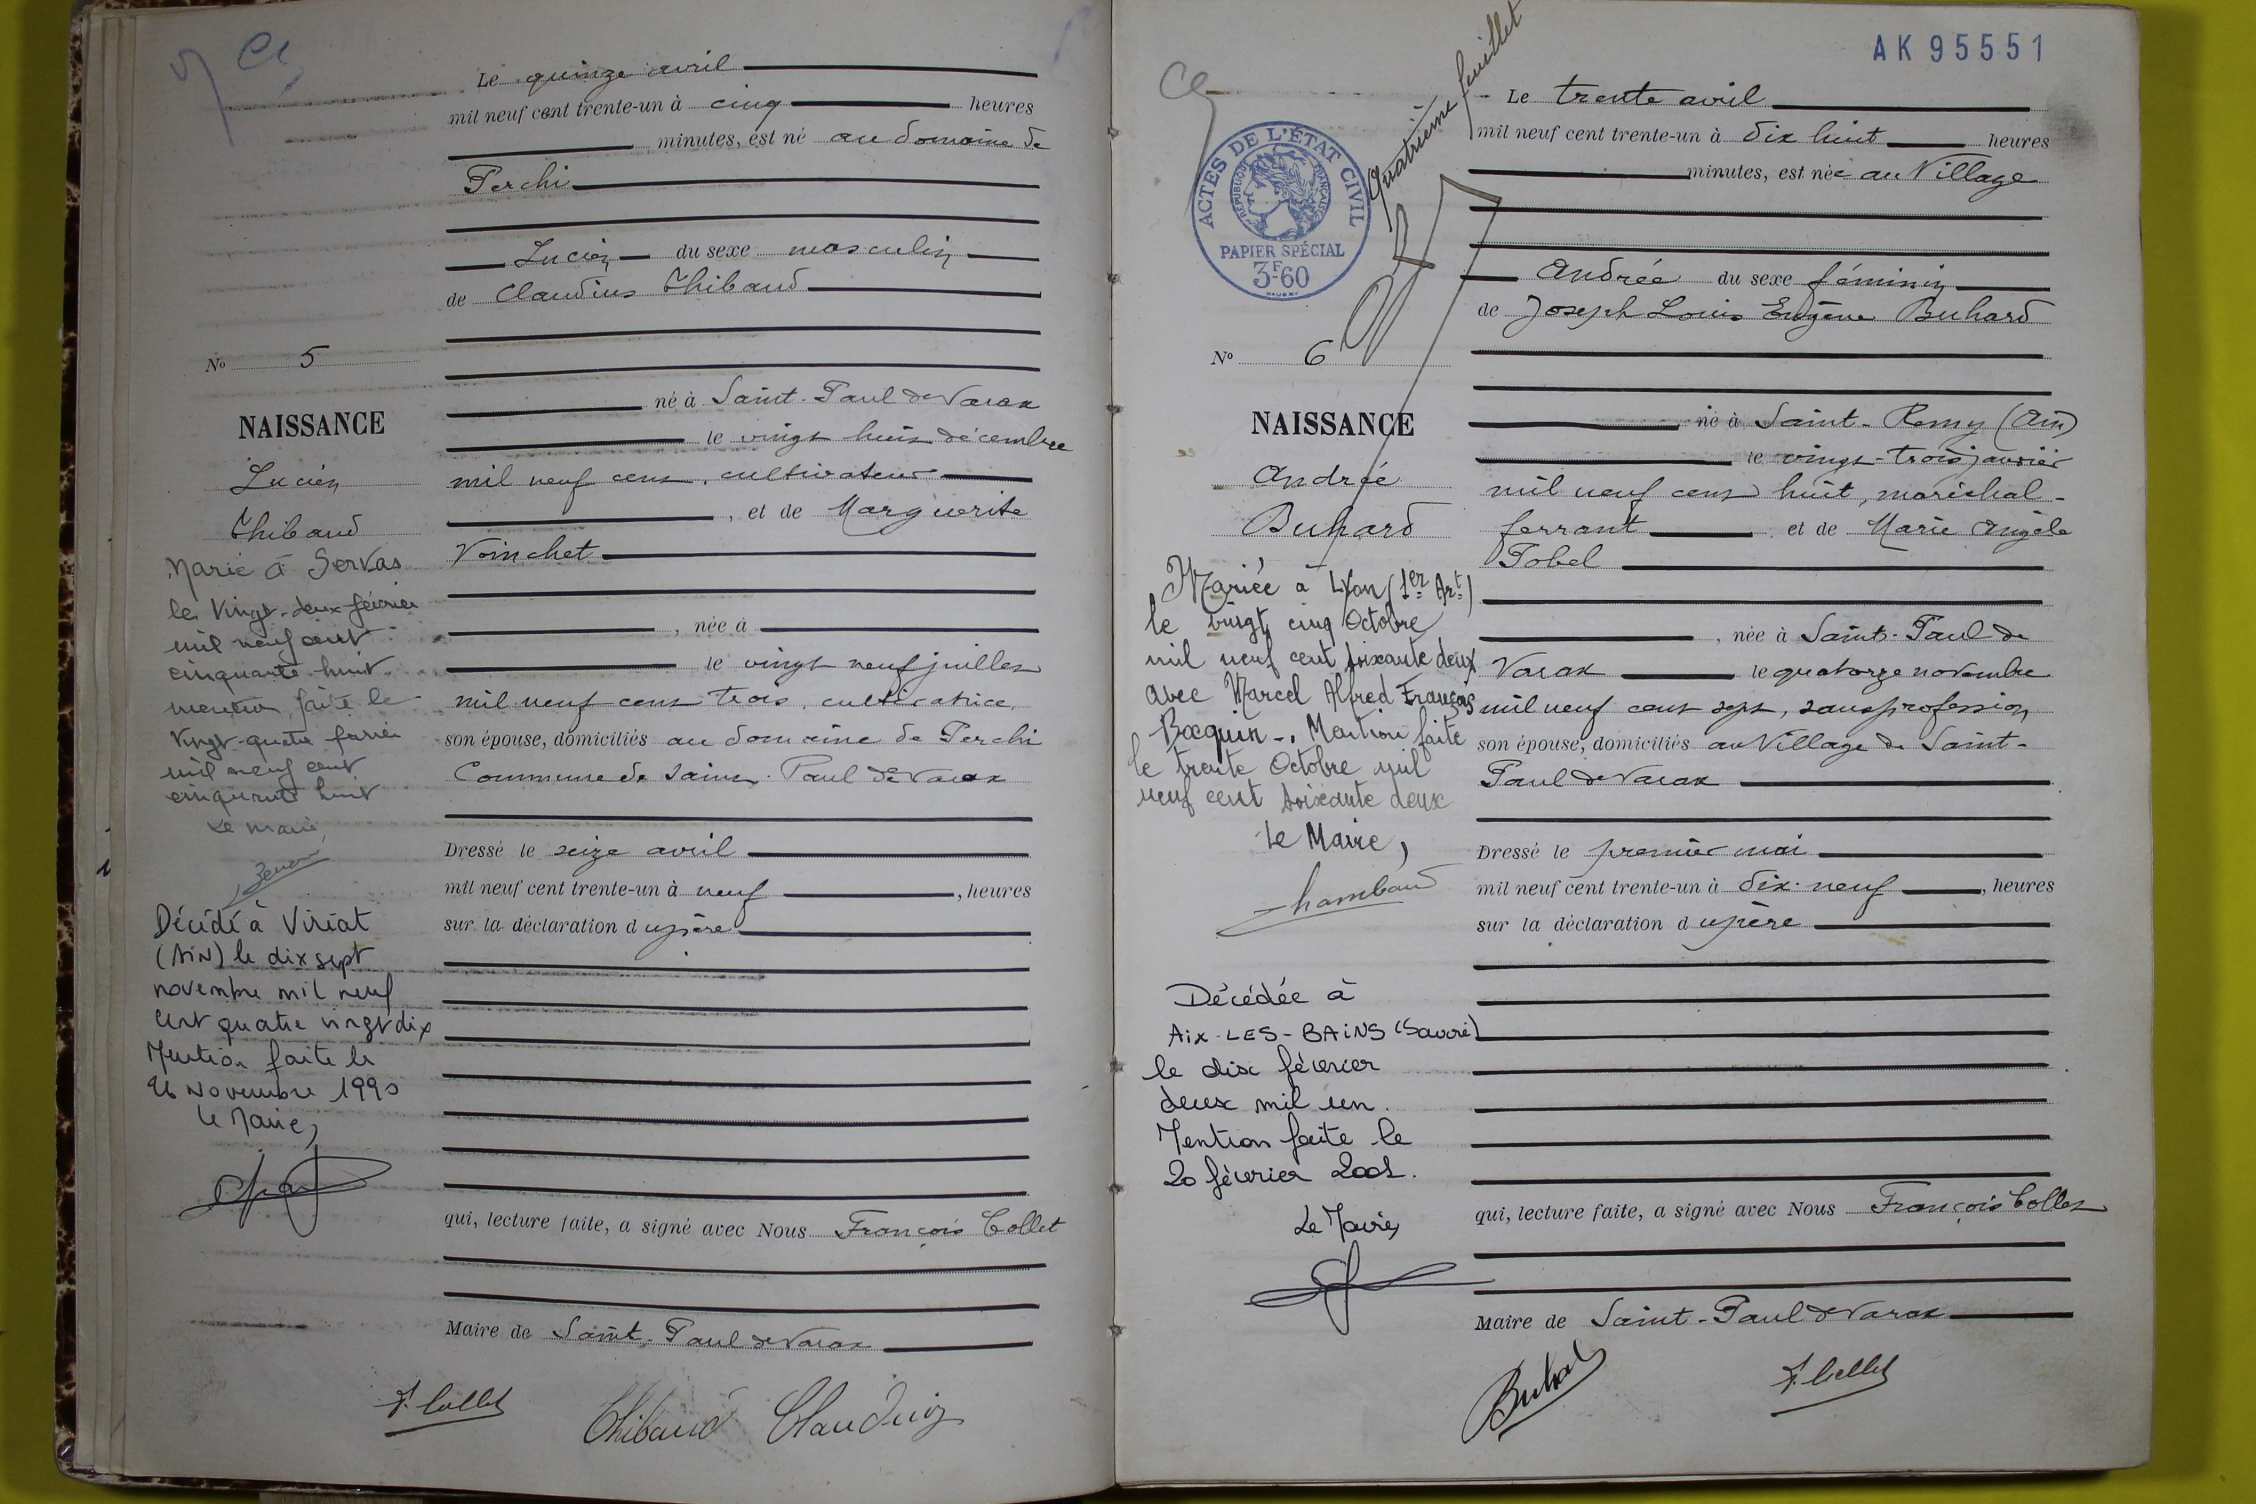 Le quinze avril
mil neuf cent trente-un à cinq heures
minutes, est né au domaine de
Perchi
Lucien du sexe masculin
de Claudius Thibaud
né à Saint-Paul de Varax
le vingt huit décembre
mil neuf cent, cultivateur
, et de Marguerite
Voinchet
, née à
le vingt neuf juillet
mil neuf cent trois, cultivatrice,
son épouse, domiciliés au domaine de Perchi
Commune de Saint-Paul de Varax
Dressé le seize avril
mil neuf cent trente-un à neuf , heures
sur la déclaration du père
qui, lecture faite, a signé avec Nous François Collet
Maire de Saint-Paul de Varax
F. Collet Thibaud Claudius
No 5
NAISSANCE
Lucien
Thibaud
Marié à Servas
le Vingt-deux février
mil neuf cent
cinquante huit
mention faite le
Vingt-quatre février
mil neuf cent
cinquante huit
Le maire,
Décédé à Viriat
(AIN) le dix sept
novembre mil neuf
cent quatre vingt dix
Mention faite le
26 Novembre 1990
Le Maire,
AK95551
Quatrième feuillet
ACTES DE L'ÉTAT CIVIL
RÉPUBLIQUE FRANÇAISE
PAPIER SPÉCIAL
3F60
Le trente avril
mil neuf cent trente-un à dix huit heures
minutes, est née au Village
Andrée du sexe féminin
de Joseph Louis Eugène Buhard
né à Saint-Remy (Ain)
le vingt-trois janvier
mil neuf cent huit, maréchal-
ferrant et de Marie Angèle
Pobel
, née à Saint-Paul de
Varax le quatorze novembre
mil neuf cent sept, sans profession
son épouse, domiciliés au Village de Saint-
Paul de Varax
Dressé le premier mai
mil neuf cent trente-un à dix-neuf , heures
sur la déclaration du père
qui, lecture faite, a signé avec Nous François Collet
Maire de Saint-Paul de Varax
Buhard F. Collet
No 6
NAISSANCE
Andrée
Buhard
Mariée à Lyon (1er Art)
le vingt cinq Octobre
mil neuf cent soixante deux
avec Marcel Alfred François
Bocquin -. Mention faite
le trente Octobre mil
neuf cent soixante deux
Le Maire,
Chambaud
Décédée à
AIX-LES-BAINS (Savoie)
le dix février
deux mil un.
Mention faite le
20 février 2001.
Le Maire,